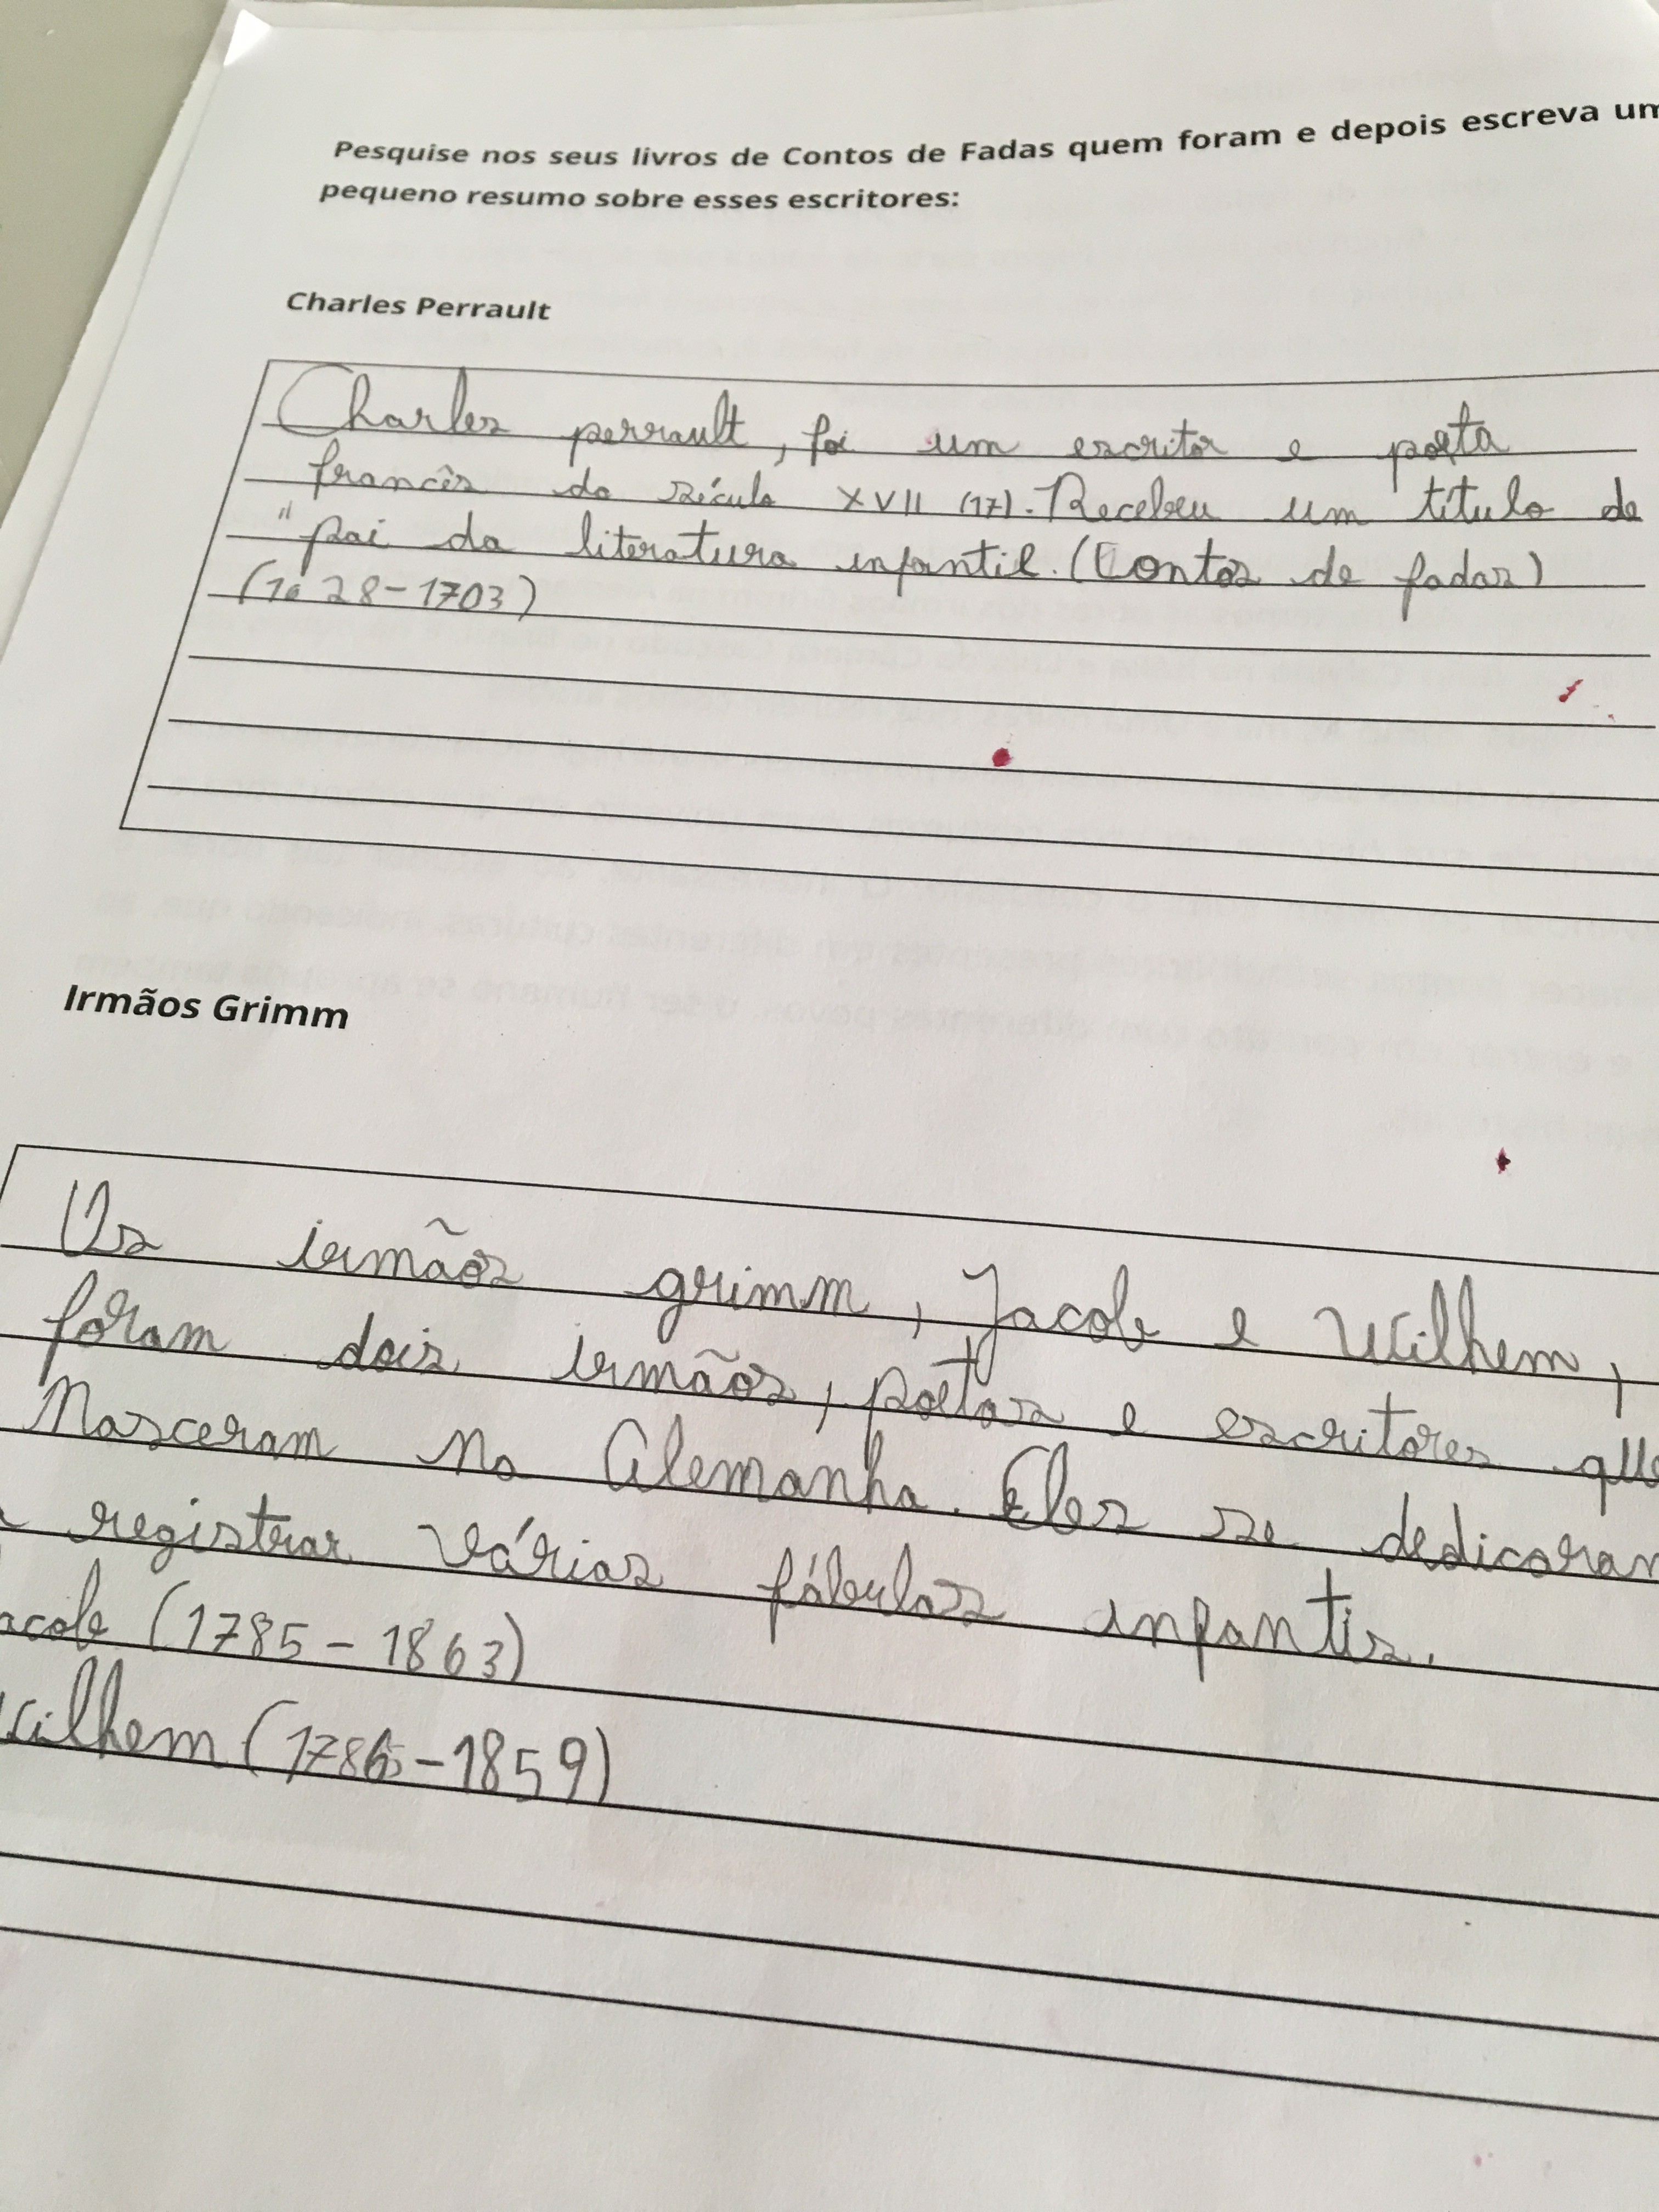 Pesquise nos seus livros de Contos de Fadas quem foram e depois escreva um
pequeno resumo sobre esses escritores:
Charles Perrault
Charles perrault, foi um escritor e poeta
francês do século XVII (17). Recebeu um título de
"pai da literatura infantil. (Contos de fadas)
(1628-1703)
Irmãos Grimm
Os irmãos grimm, Jacob e Wilhem,
foram dois irmãos, poetas e escritores que
Nasceram na Alemanha. Eles se dedicaram
a registrar várias fábulas infantis.
acob (1785-1863)
Wilhem (1786-1859)